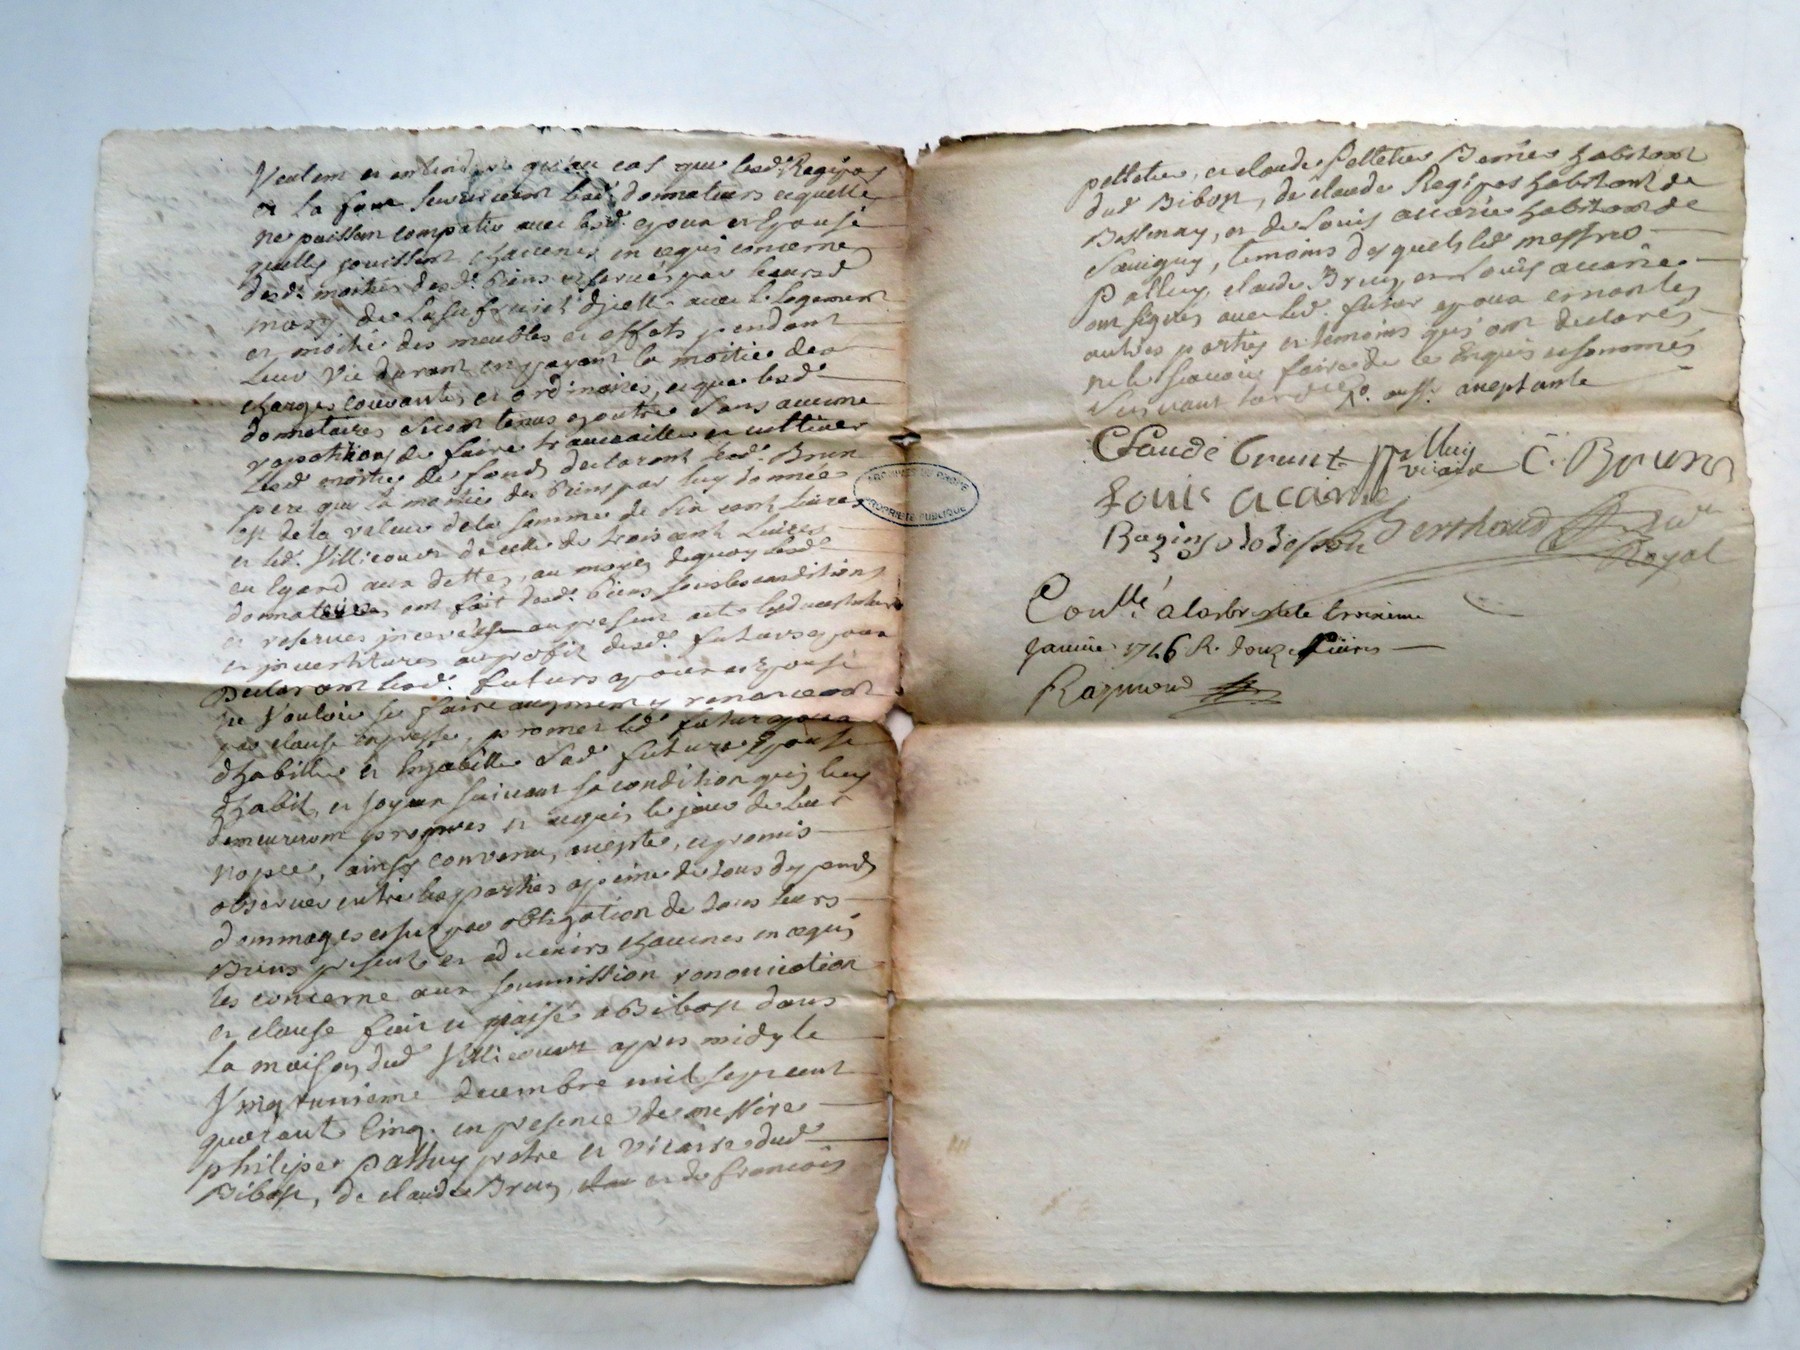 Veulent et entendent qu'au cas que lesd. Regipas
et sa fame survivent lesd. donnateurs et quelle
ne puissent compatir avec lesd. epoux et Epouse
quelles jouissent chacunes en ce qui concerne
desd. moitiés desd. biens reservés par leursd.
marys de lusufruict dicelle avec le logement
et moitié des meubles et effets pendant
leur vie durant en payant la moitié des
charges courantes et ordinaires, et que lesd.
donnataires seront tenus sans aucune
de faire travailler et cultiver
lesd. moitiés de fonds declarant led. Brun
pere que la moitié des biens par luy donnée
est de la valeur de la somme de six cent livres
et led. Villicourt de celle de trois cent livres
eu Egard aux dettes, au moyen de quoy lesd.
donnateurs ont fait desd. biens sous les conditions
et reserves au present acte
et investitures au profit desd. futurs epoux
Declarant lesd. futurs epoux et Epouse
ne Vouloir se faire augment y renonceant
par clause expresse, promet led. futur epoux
dhabiller et Enjoailler sad. future Epouse
dhabits et joyaux suivant sa condition qui luy
demeureront propres et acquis le jour de leur
nopce, ainsy convenu, accepté, et promis
observer entre les parties a peine de tous depends
dommages et par obligation de tous leurs
Biens presents et advenirs chacunes en ce qui
les concerne aux soumission renonciation
et clause fait et passé a Bibost dans
la maison dud. Villicourt apres midy le
Vingt unieme decembre mil sept cent
quarante Cinq. en presence de messire
philipe Palluy pretre et vicaire dud.
Bibost, de claude Brun, et de francois
pelletier, et claude Pelletier habitant
dud. Bibost, de claude Regipas habitant de
Bessenay, et de Louis accarie habitant de
Savigny, temoins desquels led. messire
Palluy, claude Brun, et Louis accarie
ont signés avec led. futur epoux et non les
autres parties et temoins qui ont declarés
ne le scavoir faire de ce Enquis et sommés
suivant lordce acceptante
Claude brun Palluy vicaire C. Brun
Louis acarie
Berthoud
Royal
ARCHIVES DU RHÔNE
PROPRIÉTÉ PUBLIQUE
Conllé a larbresle le troisieme
janvier 1746 R. douze livres
Raymond